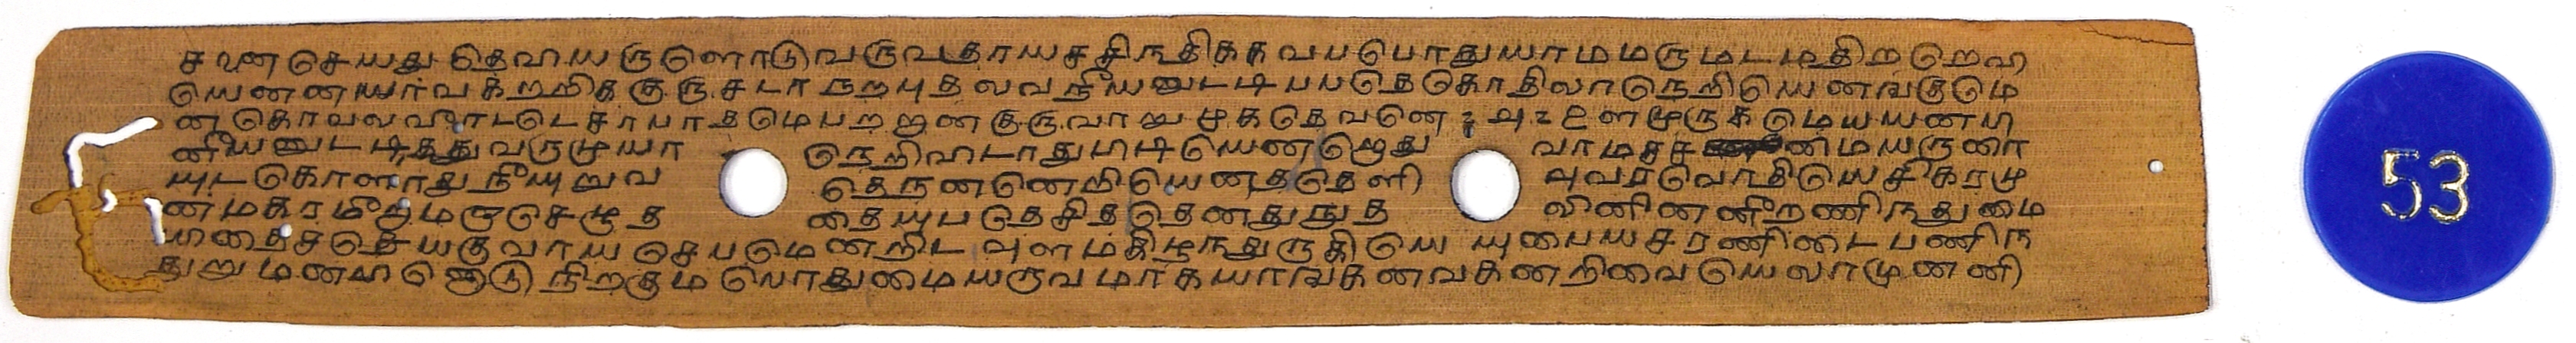 சவன செயது தெவயருளொடு வருவதாயச சிநதிககவப பொதுயாம மருமடமதிறறெவ
யெனனயர்வகற்றிககுருசடாநறபுதலவநீயனுடடிபபதெகொதிலாநெறியெனஙகுமெ
னகொவலவாடடெசரபாதமெபறறுனகுருவாறுமுகதெவனெ உளமுருகமெயயனப
னீயனுடடிததுவருமுயா நெறிவிடாதுபடியெனறெது வாமசச னமயருளா
யுடகொளாதுநீயுறுவ தெருனனெறியெனததெளி அவரவொதியெசிகரமு
னமகரமீறுமருசெழுத தையுபதெசிததெனதுநுத லினினனீறணிநதுமை
யிதைசசெயகுவாயசெபமெனறிட அளமகிழநதுருகியெ யுபையசரணிடைபணிந
துறுமணவிளொடுநிறகுமபொதுமையருவமாகயாஙகணவகணறிவையெலாமுணனி
53